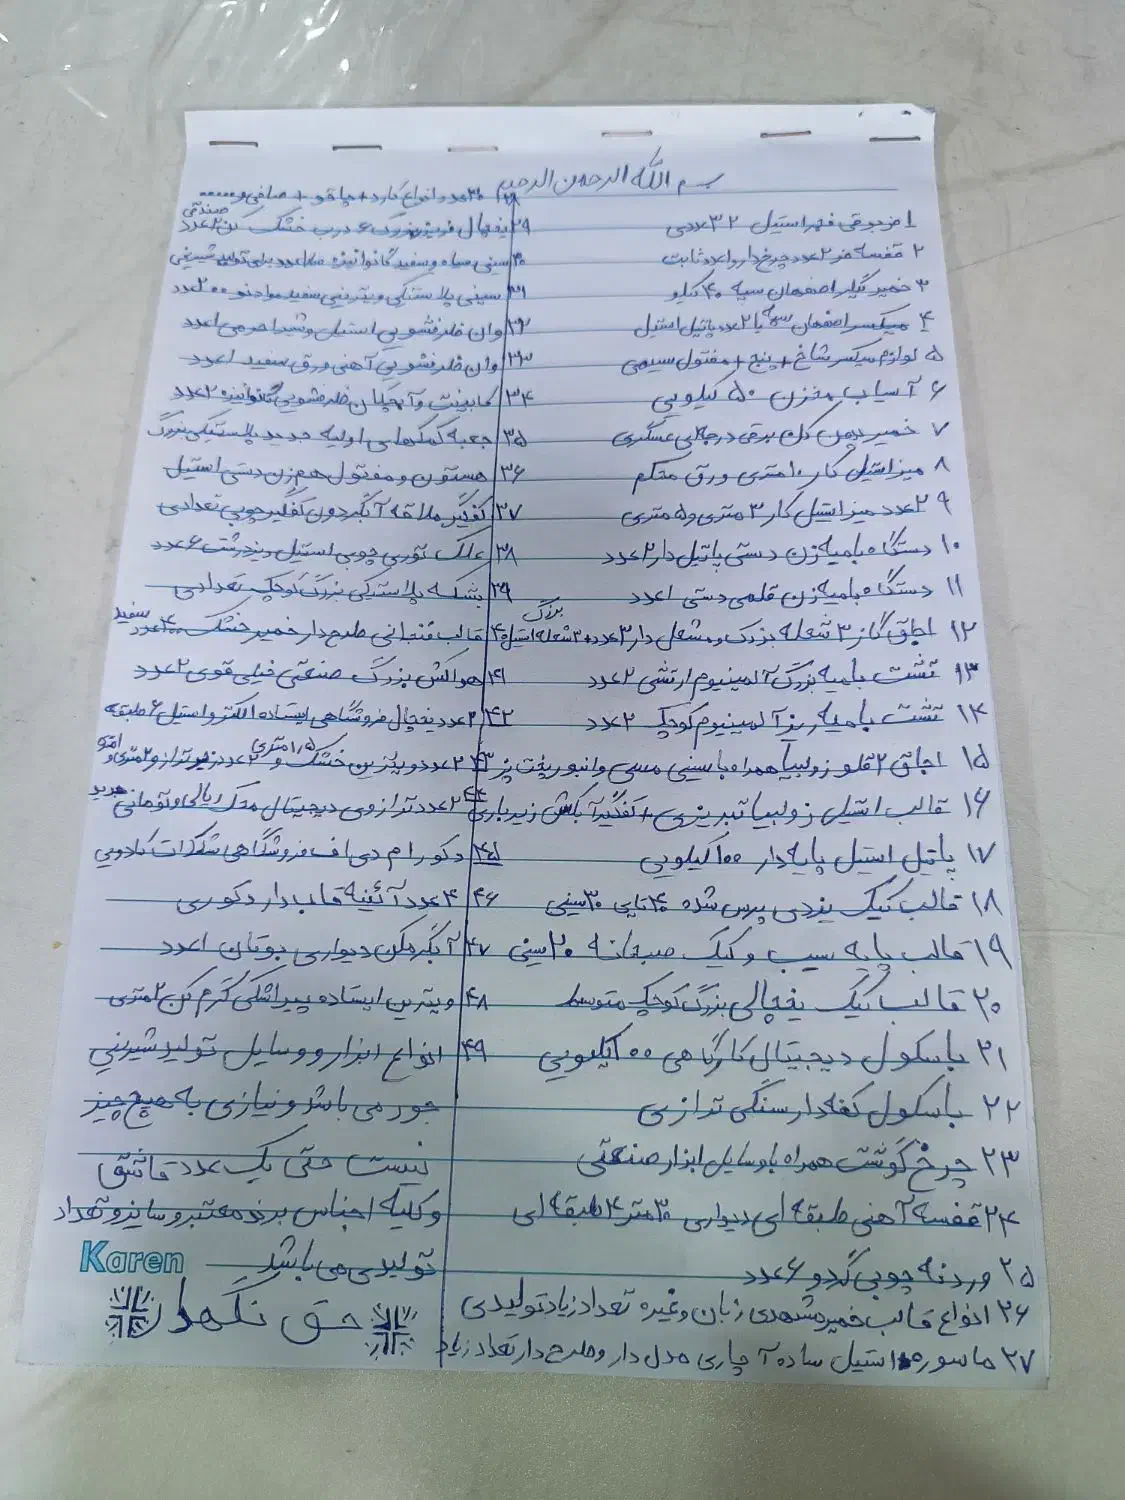 بسم الله الرحمن الرحیم
۱ فر دوقلو استیل ۳۲ عددی
۲ قفسه فر ۲ عدد چرخ‌دار و ۱ عدد ثابت
۳ خمیرگیر اصفهان سپه ۴۰ کیلو
۴ میکسر اصفهان سپه با ۲ عدد پاتیل استیل
۵ لوازم میکسر شاخ + پنج + مفتول سیمی
۶ آسیاب مخزن ۵۰ کیلویی
۷ خمیر پهن کن برقی درجا عسگری
۸ میز استیل کار ۱ متری ورق محکم
۹ ۲ عدد میز استیل کار ۳ متری و ۵ متری
۱۰ دستگاه بامیه زن دستی پاتیل دار ۲ عدد
۱۱ دستگاه بامیه زن قلمی دستی ۱ عدد
۱۲ اجاق گاز ۳ شعله بزرگ و مشعل دار ۳ عدد + ۳ شعله استیل بزرگ
۱۳ تشت بامیه بزرگ آلمینیوم ارتشی ۲ عدد
۱۴ تشت بامیه ریز آلمینیوم کوچک ۲ عدد
۱۵ اجاق ۲ قلو زولبیا همراه با سینی مسی و انبور پخت پز
۱۶ قالب استیل زولبیا تبریزی + کفگیر آبکش زیر باری
۱۷ پاتیل استیل پایه‌دار ۱۰۰ کیلویی
۱۸ قالب کیک یزدی پرس شده ۴۰ تایی ۳۰ سینی
۱۹ قالب پایه سیب و کیک صبحانه ۲۰ سینی
۲۰ قالب کیک یخچالی بزرگ کوچک متوسط
۲۱ باسکول دیجیتال کارگاهی ۱۰۰ کیلویی
۲۲ باسکول کفه‌دار سنگی ترازی
۲۳ چرخ گوشت همراه با وسایل ابزار صنعتی
۲۴ قفسه آهنی طبقه‌ای دیواری ۳ متر ۴ طبقه‌ای
۲۵ وردنه چوبی گردو ۶ عدد
۲۶ انواع قالب خمیر مشهدی زبان و غیره تعداد زیاد تولیدی
۲۷ ماسوره استیل ساده آچاری مدل دار و طرح دار تعداد زیاد
۲۸ ۳۰ عدد انواع کارد + چاقو + صافی و ....
۲۹ یخچال فریزر بزرگ ۶ درب خشک کن ۲ عدد صندقی
۳۰ سینی سیاه و سفید گالوانیزه عدد برای تولید شیرینی
۳۱ سینی پلاستیکی ویترینی سفید مواد نو ۲۰۰ عدد
۳۲ وان ظرفشویی استیل و شید اهرمی ۱ عدد
۳۳ وان ظرفشویی آهنی ورق سفید ۱ عدد
۳۴ کابینت و آبچکان ظرفشویی گالوانیزه ۲ عدد
۳۵ جعبه کمکهای اولیه جدید پلاستیکی بزرگ
۳۶ هستون و مفتول همزن دستی استیل
۳۷ کفگیر ملاقه آبگردون کفگیر چوبی تعدادی
۳۸ علک توری چوبی استیل ریز درشت ۶ عدد
۳۹ بشکه پلاستیکی بزرگ کوچک تعدادی
۴۰ قالب فنجانی طرح‌دار خمیر خشک ۴۰۰ عدد سفید
۴۱ هواکش بزرگ صنعتی خیلی قوی ۲ عدد
۴۲ ۲ عدد یخچال فروشگاهی ایستاده الکترو استیل ۶ طبقه
۴۳ ۲ عدد ویترین خشک ۱٫۵ متری و ۲ عدد زیر تراز و ۲ متری و ۱ متری
۴۴ ۲ عدد ترازوی دیجیتال محک ریالی و تومانی جدید
۴۵ دکور ام دی اف فروشگاهی شکلات کادویی
۴۶ ۴ عدد آئینه قاب‌دار دکوری
۴۷ آبگرمکن دیواری بوتان ۱ عدد
۴۸ ویترین ایستاده پیراشکی گرم کن ۲ متری
۴۹ انواع ابزار و وسایل تولید شیرینی
جور می باشد و نیازی به هیچ چیز
نیست حتی یک عدد قاشق
و کلیه اجناس برند معتبر و سایز و تعداد
تولیدی می باشد
Karen
حق نگهدار